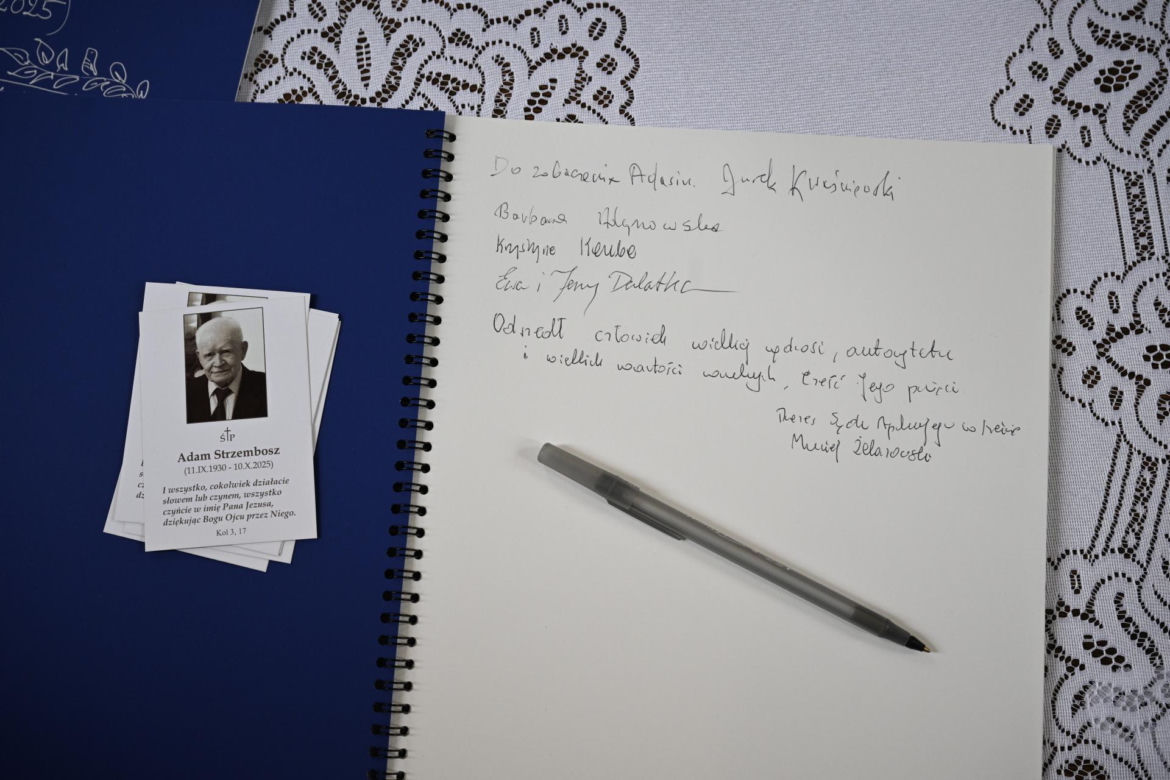 2025)
ŚP
Adam Strzembosz
(11.IX.1930 - 10.X.2025)
I wszystko, cokolwiek działacie
słowem lub czynem, wszystko
czyńcie w imię Pana Jezusa,
dziękując Bogu Ojcu przez Niego.
Kol 3, 17
Do zobaczenia Adasiu. Jurek Kwaśniewski
Barbara
Krystyna
Ewa i Jerzy
Odszedł człowiek wielkiej mądrości, autorytetu
i wielkich wartości moralnych. Cześć Jego pamięci
Prezes Sądu Apelacyjnego w
Żelazowski